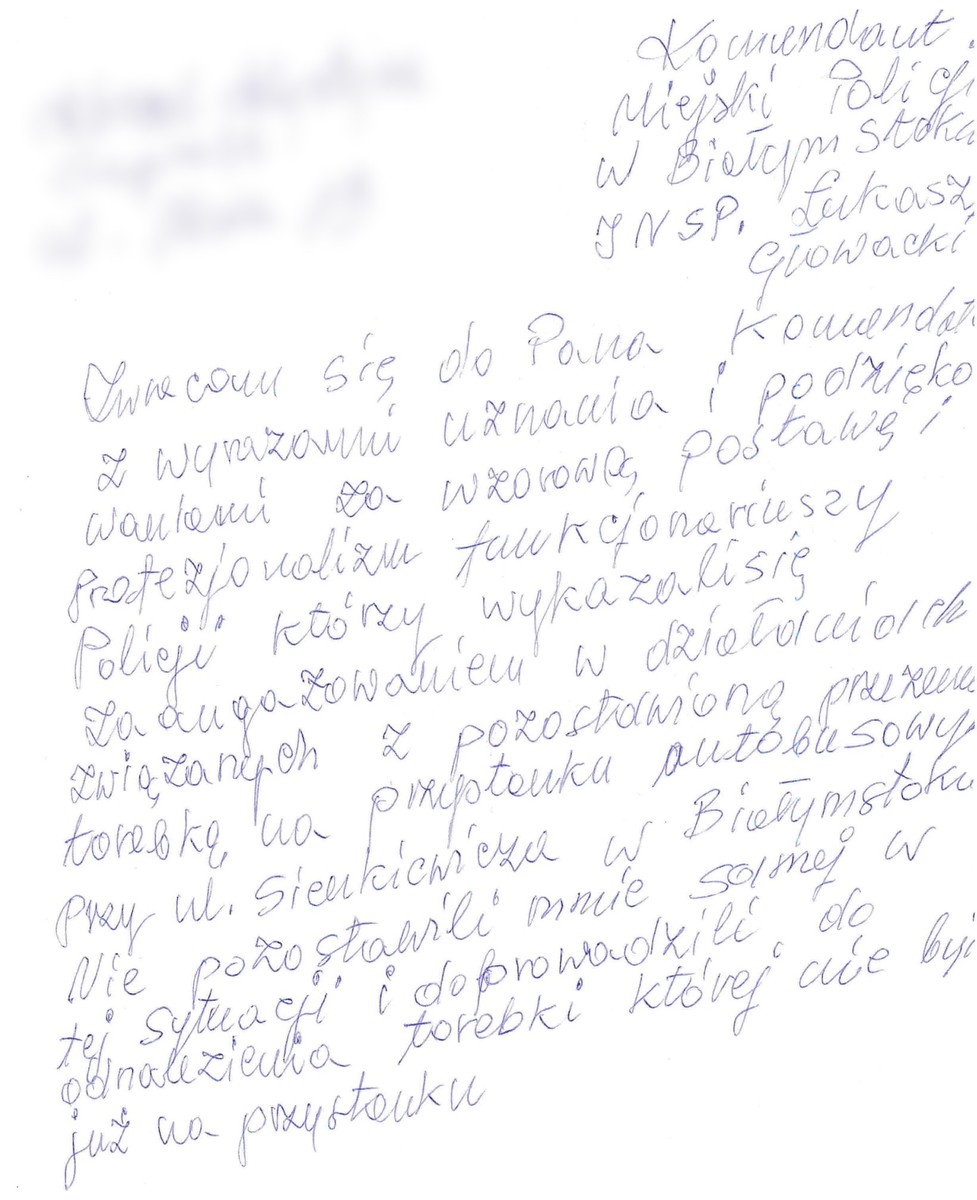 Komendant
Miejski Policji
w Białymstoku
INSP. Łukasz
Głowacki
Zwracam się do Pana Komendat
z wyrazami uznania i podzięko
waniami za wzorową postawę i
profezjonalizm funkcjonariuszy
Policji którzy wykazali się
zaangazowaniem w działaniach
związanych z pozostawioną przezemn
torebką na przystanku autobusowy
przy ul. Sienkiewicza w Białymstoku
Nie pozostawili mnie samej w
tej sytuacji i doprowadzili do
odnalezienia torebki której nie był
już na przystanku